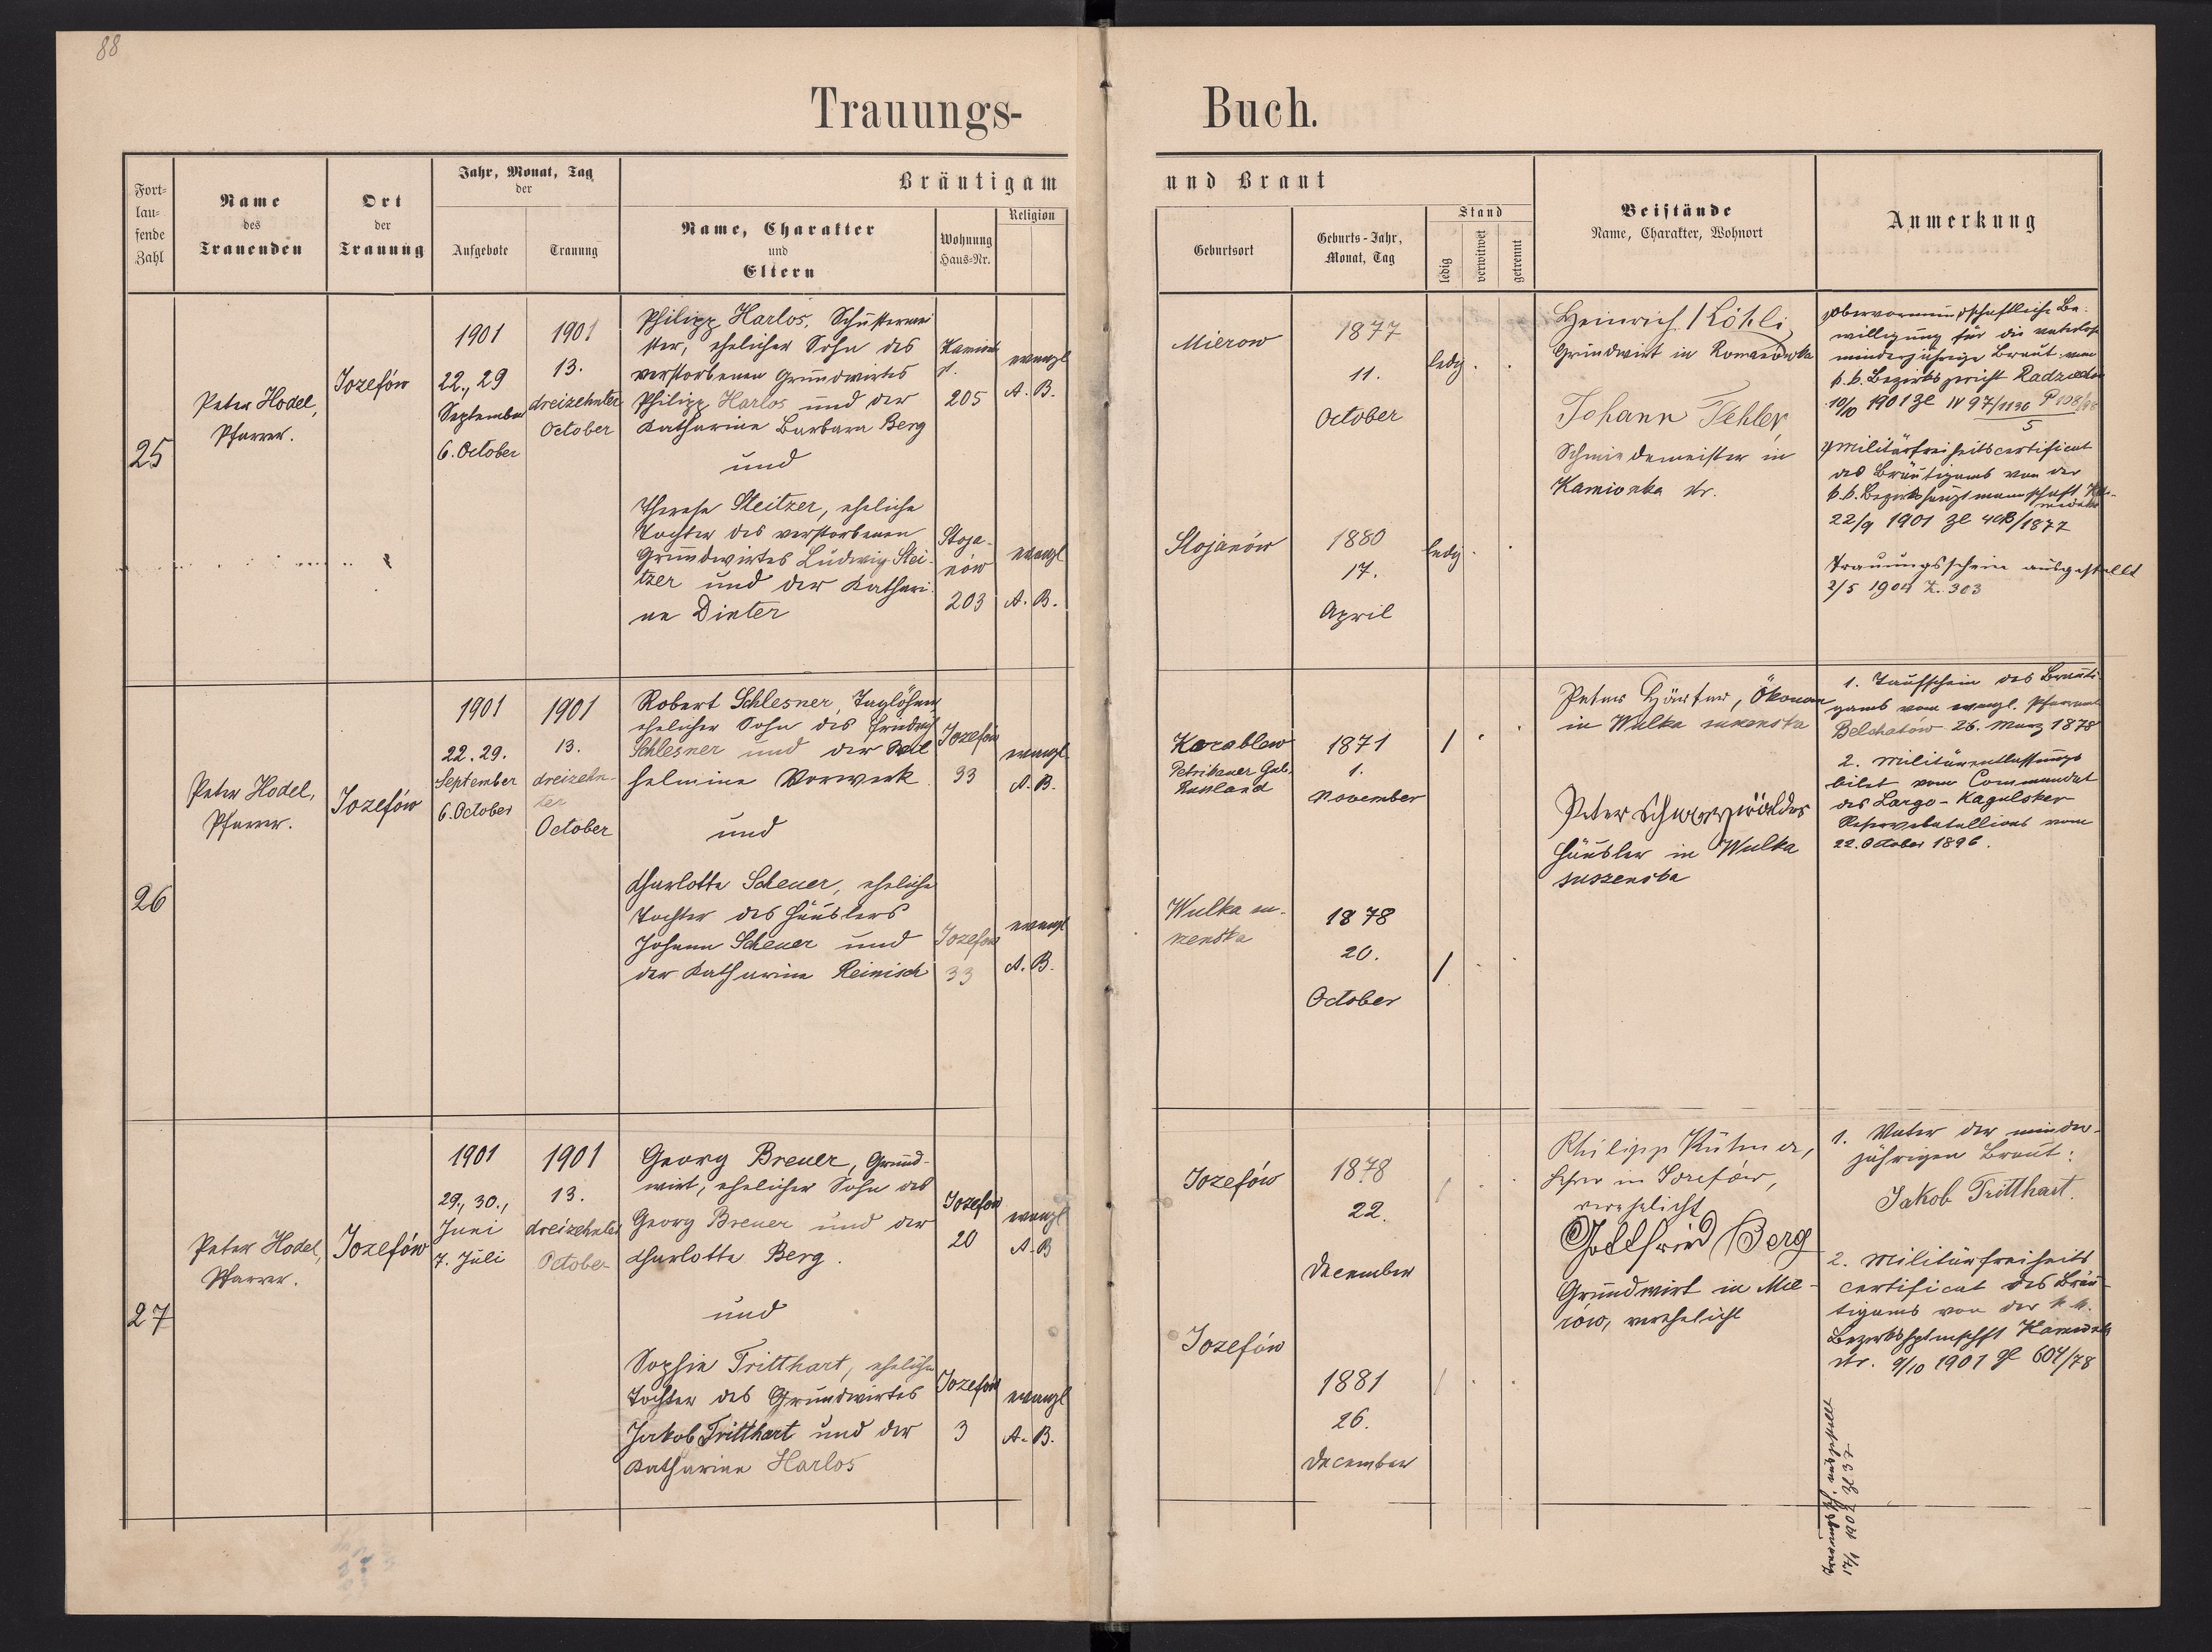 88
Trauungs-
Buch.
Fort-
lau-
fende
Zahl
Name
des
Trauenden
Ort
der
Trauung
Jahr, Monat, Tag
der
Aufgebote
Trauung
Bräutigam
Name, Charakter
und
Eltern
Wohnung
Haus-Nr.
Religion
und Braut
Geburtsort
Geburts-Jahr,
Monat, Tag
Stand
ledig
verwitwet
getrennt
Beistände
Name, Charakter, Wohnort
Anmerkung
25
Peter Hodel,
Pfarrer.
Jozefów
1901
22., 29
September
6. October
1901
13.
dreizehnter
October
Philipp Harlos, Schustermei
ster, ehelicher Sohn des
verstorbenen Grundwirtes
Philipp Harlos und der
Katharine Barbara Berg
und
Therese Steitzer, eheliche
Tochter des verstorbenen
Grundwirtes Ludwig Stei-
tzer und der Kathari-
ne Dinter
205
evangl
A. B.
Stoja-
nów
203
evangl
A. B.
Mierow
1877
11.
October
ledig
Stojanów
1880
17.
April
ledig
Heinrich Köhli
Grundwirt in Romanówka
Johann Fehler,
Schmiedemeister in
Kamionka str.
obervormundschaftliche Be-
willigung für die vaterlose
minderjährige Braut vom
k. k. Bezirksgericht
10/10 1901
Militärfreiheitscertificat
des Bräutigams von der
k. k. Bezirkshauptmannschaft
22/9 1901
Trauungsschein ausgestellt
2/5 1904 Z. 303
26
Peter Hodel,
Pfarrer.
Jozefów
1901
22. 29.
September
6. October
1901
13.
dreizehn-
ter
October
Robert Schlesner, Taglöhner
ehelicher Sohn des Friedrich
Schlesner und der Wil
helmine Vorwerk
und
Charlotte Scheuer, eheliche
Tochter des Häuslers
Johann Scheuer und
der Katharine Reinisch
Jozefów
33
evangl
A. B.
Jozefów
33
evangl
A. B.
Korablew
Petrikauer Gub.
Russland
1871
1.
November
Wulka su-
szenska
1878
20.
October
Peter Härter, Ökonom
in Wulka suszenska
Peter Schwarzwälder
Häusler in Wulka
suszenska
1. Taufschein des Bräuti-
gams vom evangl. Pfarramt
Belchatów 26. März 1878
2. Militärentlassungs
bilet vom Commandat
des Largo-Kagulsker
Reservebatallions vom
22. October 1896.
27
Peter Hodel,
Pfarrer.
Jozefów
1901
29., 30.,
Juni
7. Juli
1901
13.
dreizehnter
October
Georg Breuer, Grund-
wirt, ehelicher Sohn des
Georg Breuer und der
Charlotte Berg.
und
Sophie Tritthart, eheliche
Tochter des Grundwirtes
Jakob Tritthart und der
Katharine Harlos
Jozefów
20
evangl
A. B.
Jozefów
3
evangl
A. B.
Jozefów
1878
22.
December
Jozefów
1881
26.
December
Philipp Kühner,
Lehrer in Josefów,
verehelicht
Gottfried Berg
Grundwirt in Mie-
rów, verehelicht
1. Vater der minder-
jährigen Braut:
Jakob Tritthart.
2. Militärfreiheits
certificat des Bräu-
tigams von der k. k.
Bezirkshptmschft Kamionka
str. 9/10 1901 Zl 604/78
Trauungssch. ausgestellt
17/1 1907 Zl 37